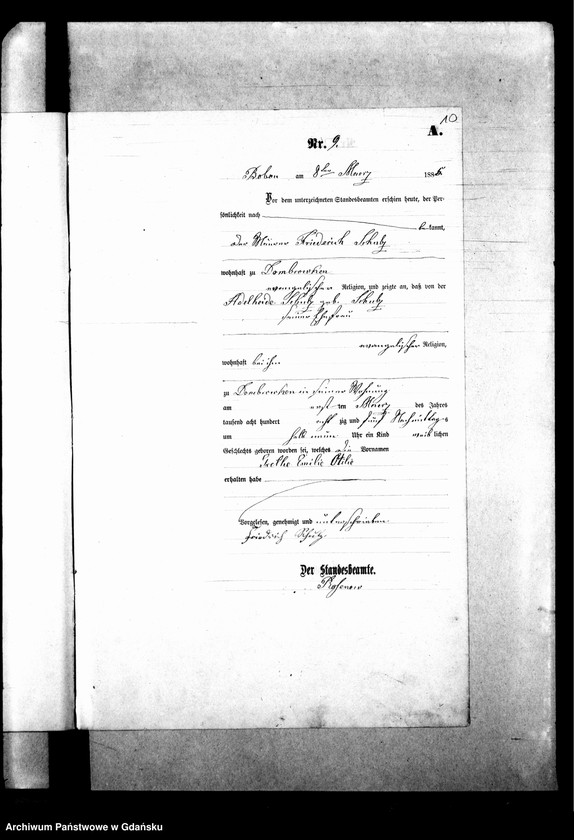 10
A.
Nr. 9.
Bobau am 8ten März 1885
Vor dem unterzeichneten Standesbeamten erschien heute, der Per-
sönlichkeit nach
bekannt,
der Maurer Friedrich Schulz
wohnhaft zu Dombrowken
evangelischer Religion, und zeigte an, daß von der
Adelheide Schulz geb. Schulz
seiner Ehefrau
evangelischer Religion,
wohnhaft bei ihm
zu Dombrowken in seiner Wohnung
am ersten März des Jahres
tausend acht hundert achtzig und fünf Nachmittags
um halb neun Uhr ein Kind weiblichen
Geschlechts geboren worden sei, welches die Vornamen
Emilie Otilie
erhalten habe
Vorgelesen, genehmigt und unterschrieben
Friedrich Schulz
Der Standesbeamte.
Archiwum Państwowe w Gdańsku